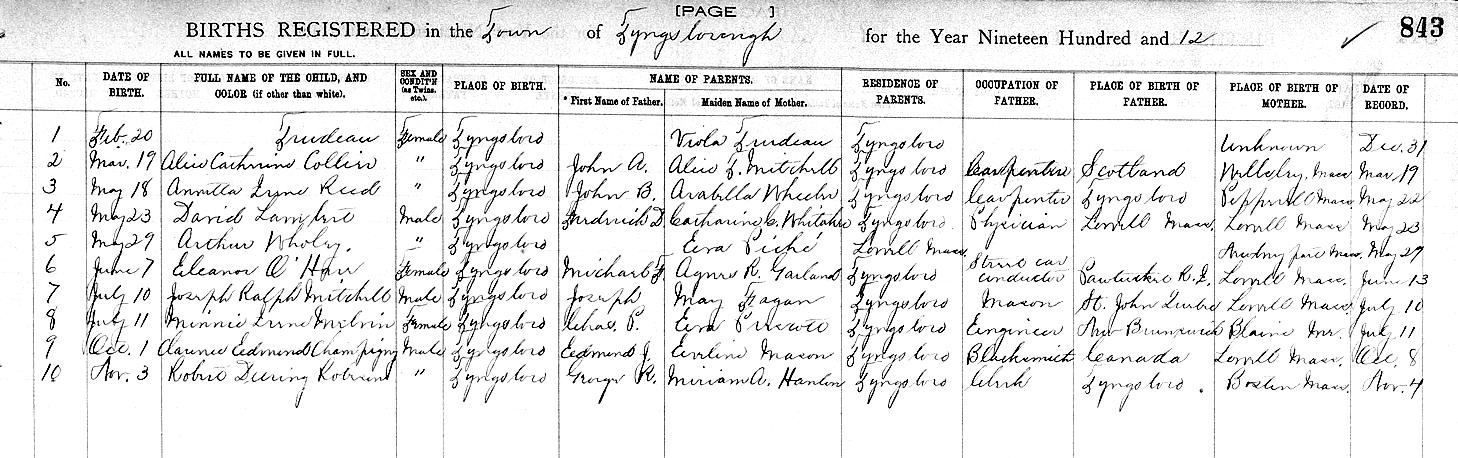 [PAGE ]
BIRTHS REGISTERED in the Town of Tyngsborough for the Year Nineteen Hundred and 12 843
ALL NAMES TO BE GIVEN IN FULL.
No. DATE OF BIRTH. FULL NAME OF THE CHILD, AND COLOR (if other than white). SEX AND CONDIT'N (as Twins, etc.) PLACE OF BIRTH. NAME OF PARENTS. * First Name of Father. Maiden Name of Mother. RESIDENCE OF PARENTS. OCCUPATION OF FATHER. PLACE OF BIRTH OF FATHER. PLACE OF BIRTH OF MOTHER. DATE OF RECORD.
1 Feb. 20 Trudeau Female Tyngsboro Viola Trudeau Tyngsboro Unknown Dec. 31
2 Mar. 19 Alice Catherine " Tyngsboro John A. Alice Mitchell Tyngsboro Carpenter Scotland Mass Mar. 19
3 May 18 Reed " Tyngsboro John B. Arabella Wheeler Tyngsboro Carpenter Tyngsboro Pepperell Mass May 22
4 May 23 David Lambert Male Tyngsboro Fredrick D. Catharine C. Whitaker Tyngsboro Physician Lowell Mass. Lowell Mass May 23
5 May 29 Arthur Wholey. " Tyngsboro Eva Piché Lowell Mass. Mass. May 29
6 June 7 Eleanor O'Hare Female Tyngsboro Michael F. Agnes R. Garland Tyngsboro Street car conductor R.I. Lowell Mass. June 13
7 July 10 Joseph Ralph Mitchell Male Tyngsboro Joseph May Fagan Tyngsboro Mason St. John Lowell Mass July 10
8 July 11 Minnie Irene Melvin Female Tyngsboro Chas. P. Eva Tyngsboro Engineer New Brunswick Blaine Me. July 11
9 Oct. 1 Clarence Edmond Champigny Male Tyngsboro Edmond J. Eveline Mason Tyngsboro Blacksmith Canada Lowell Mass. Oct. 8
10 Nov. 3 Robert " Tyngsboro George R. Miriam A. Hanlon Tyngsboro Clerk Tyngsboro. Boston Mass. Nov. 4